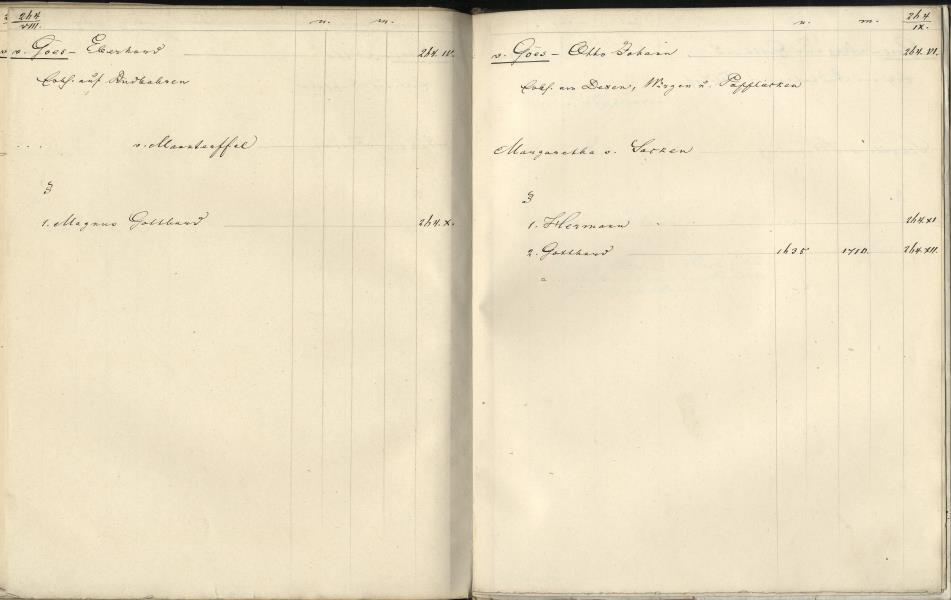 264
VIII.
n. m.
v. Goes - Eberhard 264. IV.
Erbh. auf
v. Manteuffel
1. Magnus Gotthard 264. X.
n. m. 264
IX.
v. Goes - Otto Johann 264. VI.
Erbh. von Dexen, Wirgen u. Papplacken
Margaretha v. Sacken
1. Hermann 264. XI
2. Gotthard 1635 264. XII.